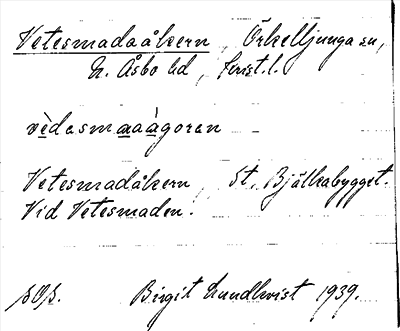 Vetesmadaåkern, Örkelljunga sn,
N. Åsbo hd, Krist. l.
vèdasmaaàgoran
Vetesmadåkern, St. Bjälkabygget.
Vid Vetesmaden.
Birgit Lundkvist 1939.